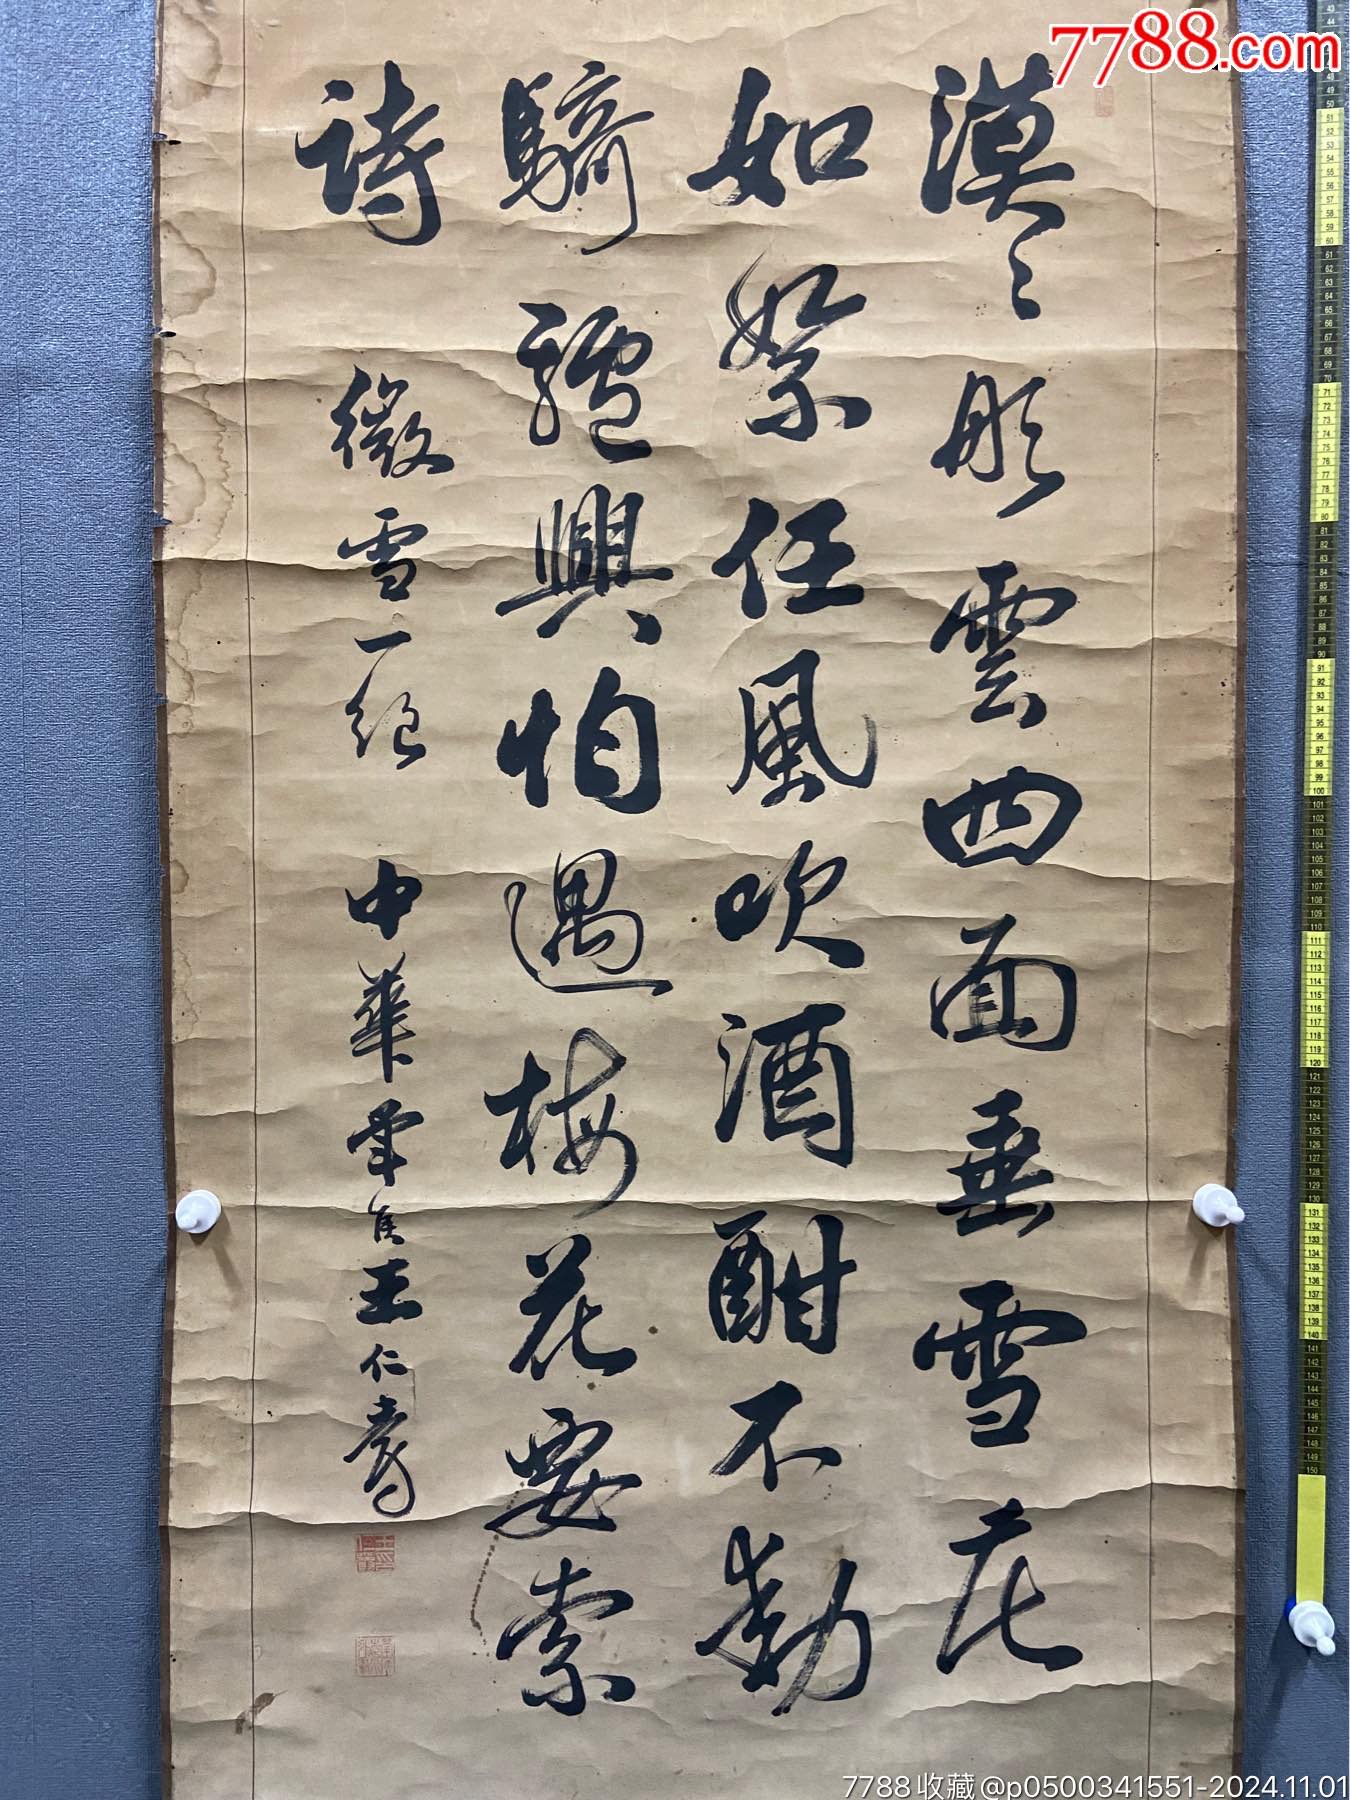 7788.com
漠〻彤雲四面垂雪花
如絮任風吹酒酣不動
騎驢興怕遇梅花要索
詩 微雪一絕 中華 王仁
7788收藏@p0500341551-2024.11.01